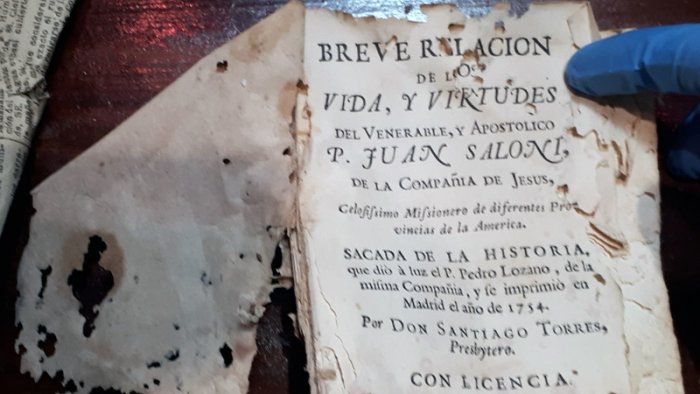 BREVE RELACION
DE LOS
VIDA, Y VIRTUDES
DEL VENERABLE, Y APOSTOLICO
P. JUAN SALONI,
DE LA COMPAÑIA DE JESUS,
Celosissimo Missionero de diferentes Pro-
vincias de la America.
SACADA DE LA HISTORIA,
que diò à luz el P. Pedro Lozano, de la
misma Compañia, y se imprimiò en
Madrid el año de 1754.
Por DON SANTIAGO TORRES,
Presbytero.
CON LICENCIA.